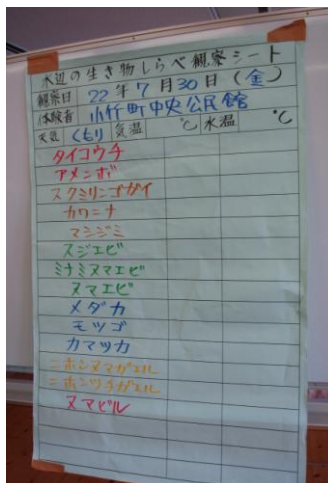 水辺の生き物しらべ観察シート
観察日 22年7月30日(金)
体験者 小竹町中央公民館
天気 くもり 気温 ℃ 水温 ℃
タイコウチ
アメンボ
スクミリンゴガイ
カワニナ
マシジミ
スジエビ
ミナミヌマエビ
ヌマエビ
メダカ
モツゴ
カマツカ
ニホンヌマガエル
ニホンツチガエル
ヌマビル